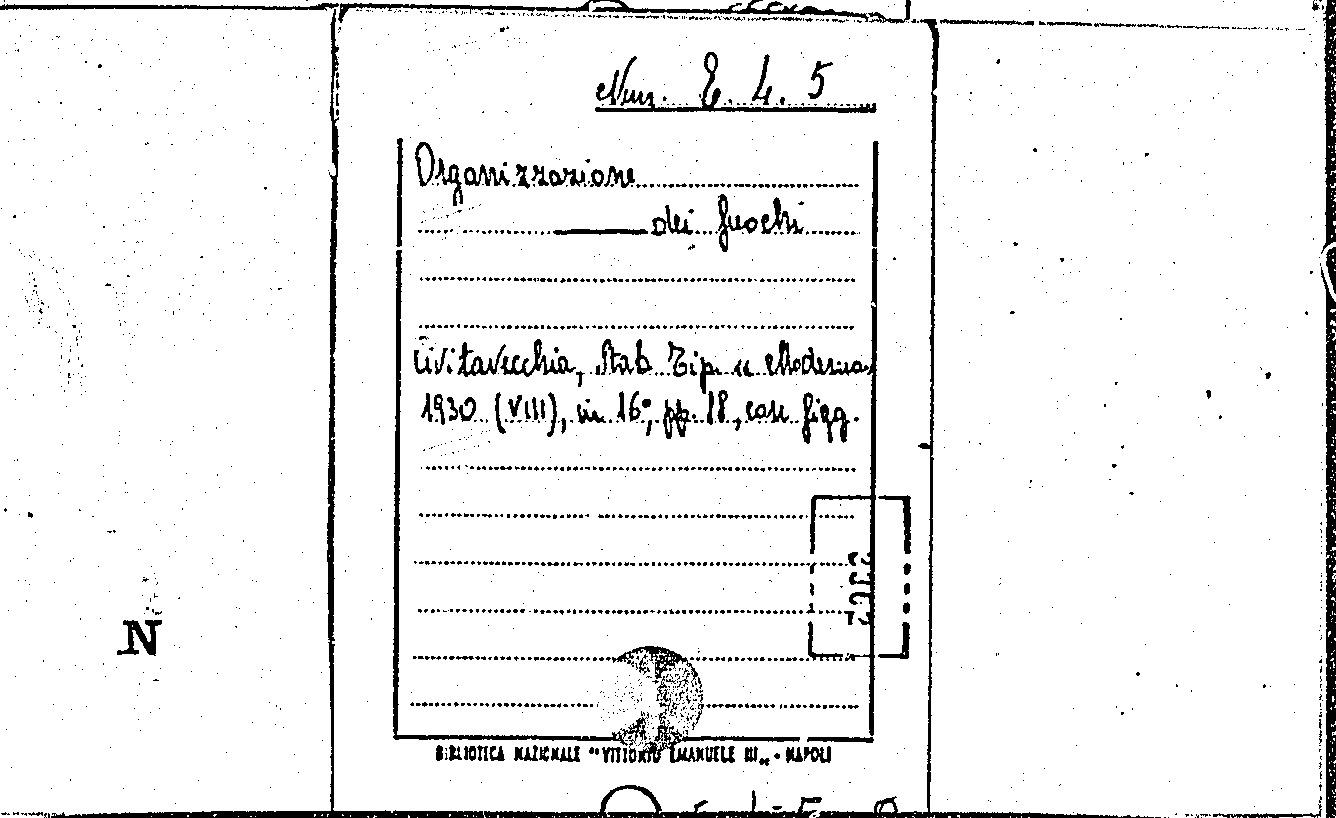 Num. E. 4. 5
Organizzazione
dei fuochi
Civitavecchia, Stab. Tip. "Moderna"
1930 (VIII), in 16°, pp. 18, con figg.
N
BIBLIOTECA NAZIONALE "VITTORIO EMANUELE III„ - NAPOLI